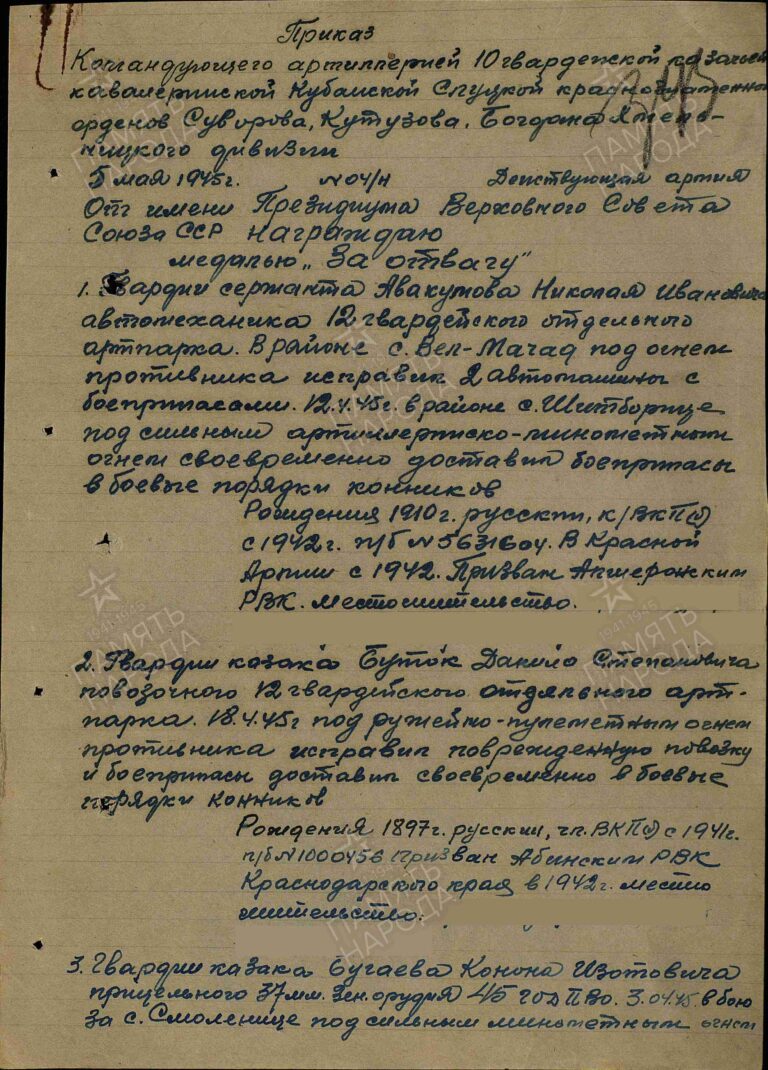 Приказ
Командующего артиллерией 10 гвардейской казачьей
кавалерийской Кубанской Слуцкой краснознаменной
орденов Суворова, Кутузова, Богдана Хмель-
ницкого дивизии
5 мая 1945г. №04/н Действующая армия
От имени Президиума Верховного Совета
Союза ССР награждаю
медалью „За отвагу"
1. Гвардии сержанта Авакумова Николая Ивановича
автомеханика 12 гвардейского отдельного
артпарка. В районе с. Вел-Мачад под огнем
противника исправил 2 автомашины с
боеприпасами. 12.4.45г. в районе с. Шитборице
под сильным артиллерийско-минометным
огнем своевременно доставил боеприпасы
в боевые порядки конников
Рождения 1910г. русский, к/ВКП(б)
с 1942г. п/б №5631604. В Красной
Армии с 1942. Призван Апшеронским
РВК. Местожительство.
2. Гвардии казака Буток Данило Степановича
повозочного 12 гвардейского отдельного арт-
парка. 18.4.45г под ружейно-пулеметным огнем
противника исправил поврежденную повозку
и боеприпасы доставил своевременно в боевые
порядки конников
Рождения 1897г. русский, чл. ВКП(б) с 1941г.
п/б №1000456 призван Абинским РВК
Краснодарского края в 1942г. место
жительство.
3. Гвардии казака Бугаева Конона Изотовича
прицельного 37мм. зен. орудия 45 гозд ПВО. 3.04.45 в бою
за с. Смоленице под сильным минометным огнем
ПАМЯТЬ НАРОДА
1941-1945